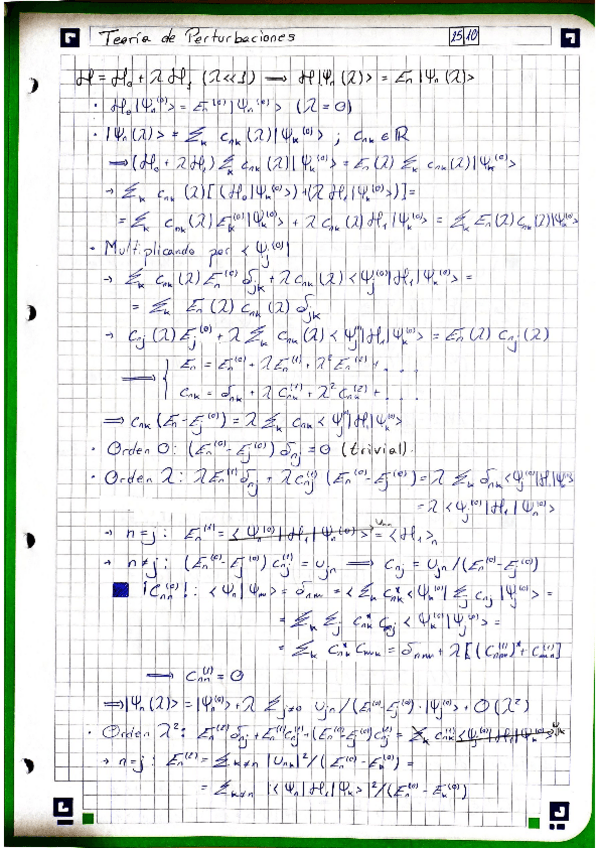 Teoría de Perturbaciones 25/10
ℋ = ℋ₀ + λ ℋ₁ (λ<<1) ⟶ ℋ|Ψₙ(λ)> = Eₙ|Ψₙ(λ)>
· ℋ₀|Ψₙ⁽⁰⁾> = Eₙ⁽⁰⁾|Ψₙ⁽⁰⁾> (λ=0)
· |Ψₙ(λ)> = Σₖ cₙₖ(λ)|Ψₖ⁽⁰⁾> ; cₙₖ ∈ ℝ
⟹ (ℋ₀ + λℋ₁) Σₖ cₙₖ(λ)|Ψₖ⁽⁰⁾> = Eₙ(λ) Σₖ cₙₖ(λ)|Ψₖ⁽⁰⁾>
→ Σₖ cₙₖ(λ)[(ℋ₀|Ψₖ⁽⁰⁾>)+(λℋ₁|Ψₖ⁽⁰⁾>)] =
= Σₖ cₙₖ(λ)Eₖ⁽⁰⁾|Ψₖ⁽⁰⁾> + λ cₙₖ(λ)ℋ₁|Ψₖ⁽⁰⁾> = Σₖ Eₙ(λ)cₙₖ(λ)|Ψₖ⁽⁰⁾>
· Multiplicando por <Ψⱼ⁽⁰⁾|
→ Σₖ cₙₖ(λ)Eₙ⁽⁰⁾δⱼₖ + λcₙₖ(λ)<Ψⱼ⁽⁰⁾|ℋ₁|Ψₖ⁽⁰⁾> =
= Σₖ Eₙ(λ) cₙₖ(λ) δⱼₖ
→ cₙⱼ(λ)Eⱼ⁽⁰⁾ + λ Σₖ cₙₖ(λ)<Ψⱼ⁽⁰⁾|ℋ₁|Ψₖ⁽⁰⁾> = Eₙ(λ) cₙⱼ(λ)
⟹ { Eₙ = Eₙ⁽⁰⁾ + λEₙ⁽¹⁾ + λ²Eₙ⁽²⁾ + . . .
cₙₖ = δₙₖ + λcₙₖ⁽¹⁾ + λ²cₙₖ⁽²⁾ + . . .
⟹ cₙₖ(Eₙ-Eⱼ⁽⁰⁾) = λ Σₖ cₙₖ <Ψⱼ⁽⁰⁾|ℋ₁|Ψₖ⁽⁰⁾>
· Orden 0: (Eₙ⁽⁰⁾-Eⱼ⁽⁰⁾) δₙⱼ = 0 (trivial).
· Orden λ: λEₙ⁽¹⁾δₙⱼ + λcₙⱼ⁽¹⁾ (Eₙ⁽⁰⁾-Eⱼ⁽⁰⁾) = λ Σₖ δₙₖ<Ψⱼ⁽⁰⁾|ℋ₁|Ψₖ⁽⁰⁾>
= λ <Ψⱼ⁽⁰⁾|ℋ₁|Ψₙ⁽⁰⁾>
→ n=j: Eₙ⁽¹⁾ = <Ψₙ⁽⁰⁾|ℋ₁|Ψₙ⁽⁰⁾> = <ℋ₁>ₙ
→ n≠j: (Eₙ⁽⁰⁾-Eⱼ⁽⁰⁾) cₙⱼ⁽¹⁾ = υⱼₙ ⟹ cₙⱼ = υⱼₙ/(Eₙ⁽⁰⁾-Eⱼ⁽⁰⁾)
¡Cₙₙ⁽⁰⁾!: <Ψₙ|Ψₘ> = δₙₘ = <Σₖ cₙₖ* <Ψₖ⁽⁰⁾| Σⱼ cₙⱼ |Ψⱼ⁽⁰⁾> =
= Σₖ Σⱼ cₙₖ* cₙⱼ <Ψₖ⁽⁰⁾|Ψⱼ⁽⁰⁾> =
= Σₖ cₙₖ* cₘₖ = δₙₘ + λ[(cₙₘ⁽¹⁾)* + cₘₙ⁽¹⁾]
⟹ cₙₙ⁽¹⁾ = 0
⟹ |Ψₙ(λ)> = |Ψₙ⁽⁰⁾> + λ Σⱼ≠₀ υⱼₙ/(Eₙ⁽⁰⁾-Eⱼ⁽⁰⁾)·|Ψⱼ⁽⁰⁾> + O(λ²)
· Orden λ²: Eₙ⁽²⁾δₙⱼ + Eₙ⁽¹⁾cₙⱼ⁽¹⁾ + (Eₙ⁽⁰⁾-Eⱼ⁽⁰⁾)cₙⱼ⁽²⁾ = Σₖ cₙₖ⁽¹⁾<Ψⱼ⁽⁰⁾|ℋ₁|Ψₖ⁽⁰⁾>
→ n=j: Eₙ⁽²⁾ = Σₖ≠ₙ |υₙₖ|²/(Eₙ⁽⁰⁾-Eₖ⁽⁰⁾) =
= Σₖ≠ₙ |<Ψₙ|ℋ₁|Ψₖ>|²/(Eₙ⁽⁰⁾-Eₖ⁽⁰⁾)